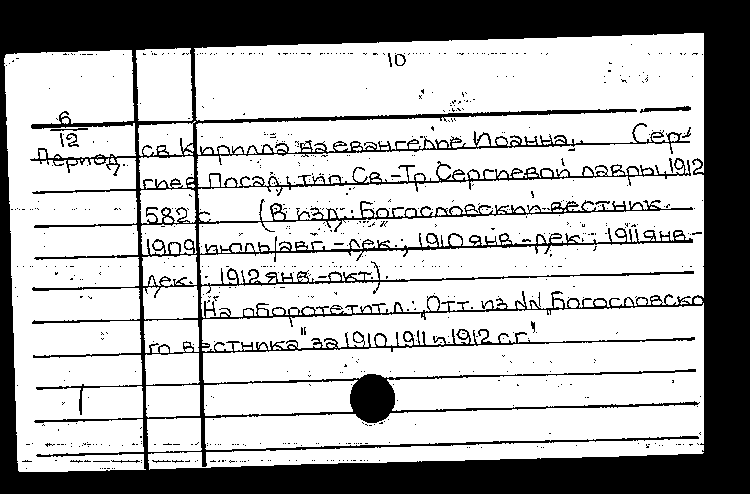 10
6
12
Период.
св. Кирилла на евангелье Иоанна,. Сер-
гиев Посад, тип. Св.-Тр. Сергиевой лавры, 1912
582 с. (В изд.: Богословский вестник.
1909 июль/авг. - дек.; 1910 янв. - дек.; 1911 янв. -
дек.; 1912 янв.-окт.).
На обороте тит. л.: „Отт. из №№ „Богословско
го вестника" за 1910, 1911 и 1912 г.г."